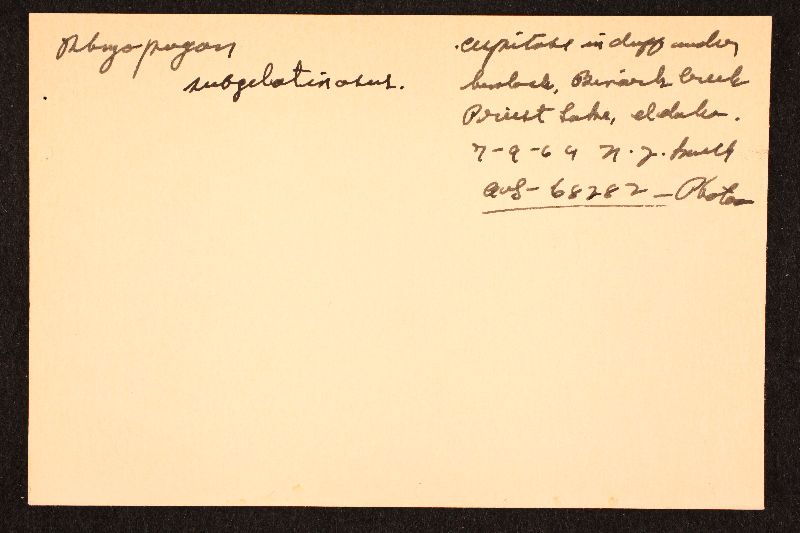 Rhizopogon
subgelatinosus.
cespitose in duff under
hemlock, Binarch Creek
Priest Lake, Idaho.
7-9-64 N. J. Smith
AHS- 68282 - Photo